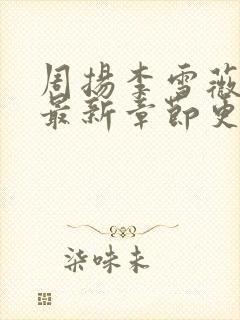 周扬李雪薇
最新章节更
柒味未